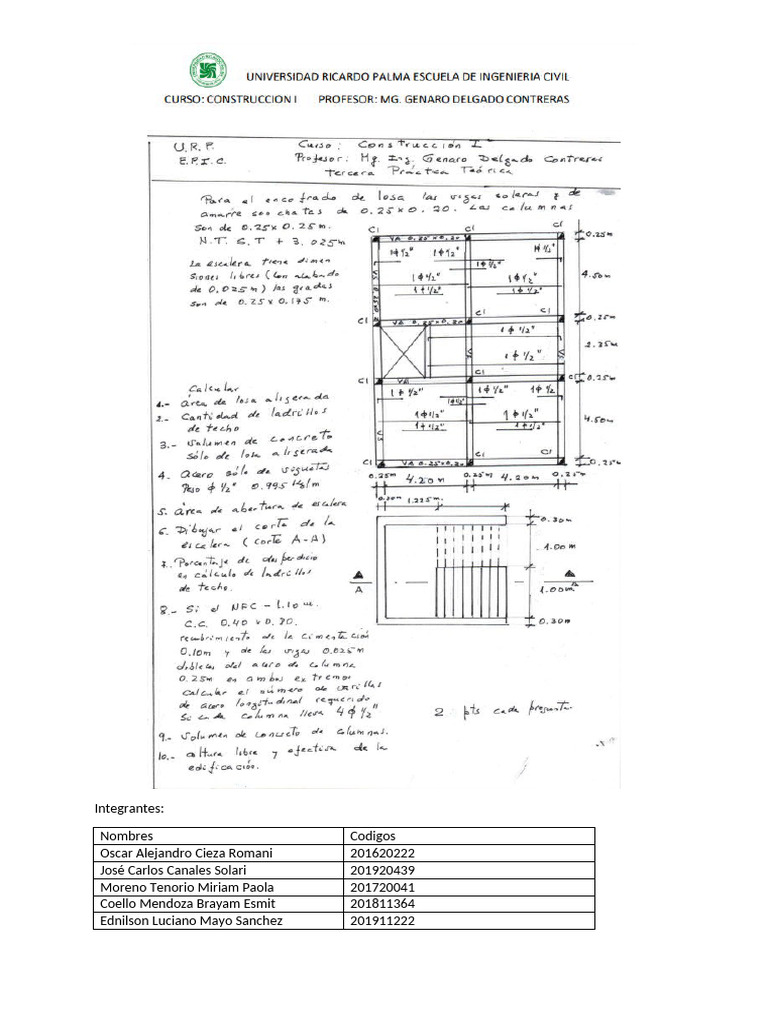 UNIVERSIDAD RICARDO PALMA ESCUELA DE INGENIERIA CIVIL
CURSO: CONSTRUCCION I PROFESOR: MG. GENARO DELGADO CONTRERAS
U.R.P.
E.P.I.C.
Curso: Construcción I
Profesor: Mg. Ing. Genaro Delgado Contreras
Tercera Práctica Teórica
Para el encofrado de losa las vigas soleras y de
amarre son chatas de 0.25x0.20. Las columnas
son de 0.25x0.25m.
N.T.S.T + 3.025m
La escalera tiene dimen
siones libres (con acabado
de 0.025m) las gradas
son de 0.25x0.175 m.
Calcular
1.- área de losa aligerada
2.- Cantidad de ladrillos
de techo
3.- Volumen de concreto
sólo de losa aligerada
4. Acero sólo de viguetas
Peso φ 1/2" 0.995 kg/m
5. área de abertura de escalera
6. Dibujar el corte de la
escalera (corte A-A)
7.- Porcentaje de desperdicio
en cálculo de ladrillos
de techo.
8.- Si el NFC - 1.10 m.
C.C. 0.40 x 0.80.
recubrimiento de la cimentación
0.10m y de las vigas 0.025m
dobleces del acero de columna
0.25m en ambos extremos
calcular el número de varillas
de acero longitudinal requerido
si cada columna lleva 4 φ 1/2"
9.- Volumen de concreto de columnas.
10.- altura libre y efectiva de la
edificación.
C1 C1 C1
VA 0.25x0.20
0.25m
1φ1/2" 1φ1/2" 1φ1/2"
1φ1/2" 1φ1/2"
1φ1/2" 1φ1/2"
VS 0.25x0.20
4.50m
C1 VA 0.25x0.20 C1 C1
0.25m
1φ1/2"
1φ1/2"
1φ1/2"
VS VS
2.25m
C1 VA C1 C1
0.25m
1φ1/2" 1φ1/2" 1φ1/2"
1φ1/2" 1φ1/2"
1φ1/2" 1φ1/2"
VS
4.50m
C1 VA 0.25x0.20 C1 C1
0.25m
0.25m 4.20m 0.25m 4.20m 0.25m
0.30m 1.225m.
0.30m
1.00m
A
1.00m
0.30m
2 pts cada pregunta.
Integrantes:
Nombres Codigos
Oscar Alejandro Cieza Romani 201620222
José Carlos Canales Solari 201920439
Moreno Tenorio Miriam Paola 201720041
Coello Mendoza Brayam Esmit 201811364
Ednilson Luciano Mayo Sanchez 201911222